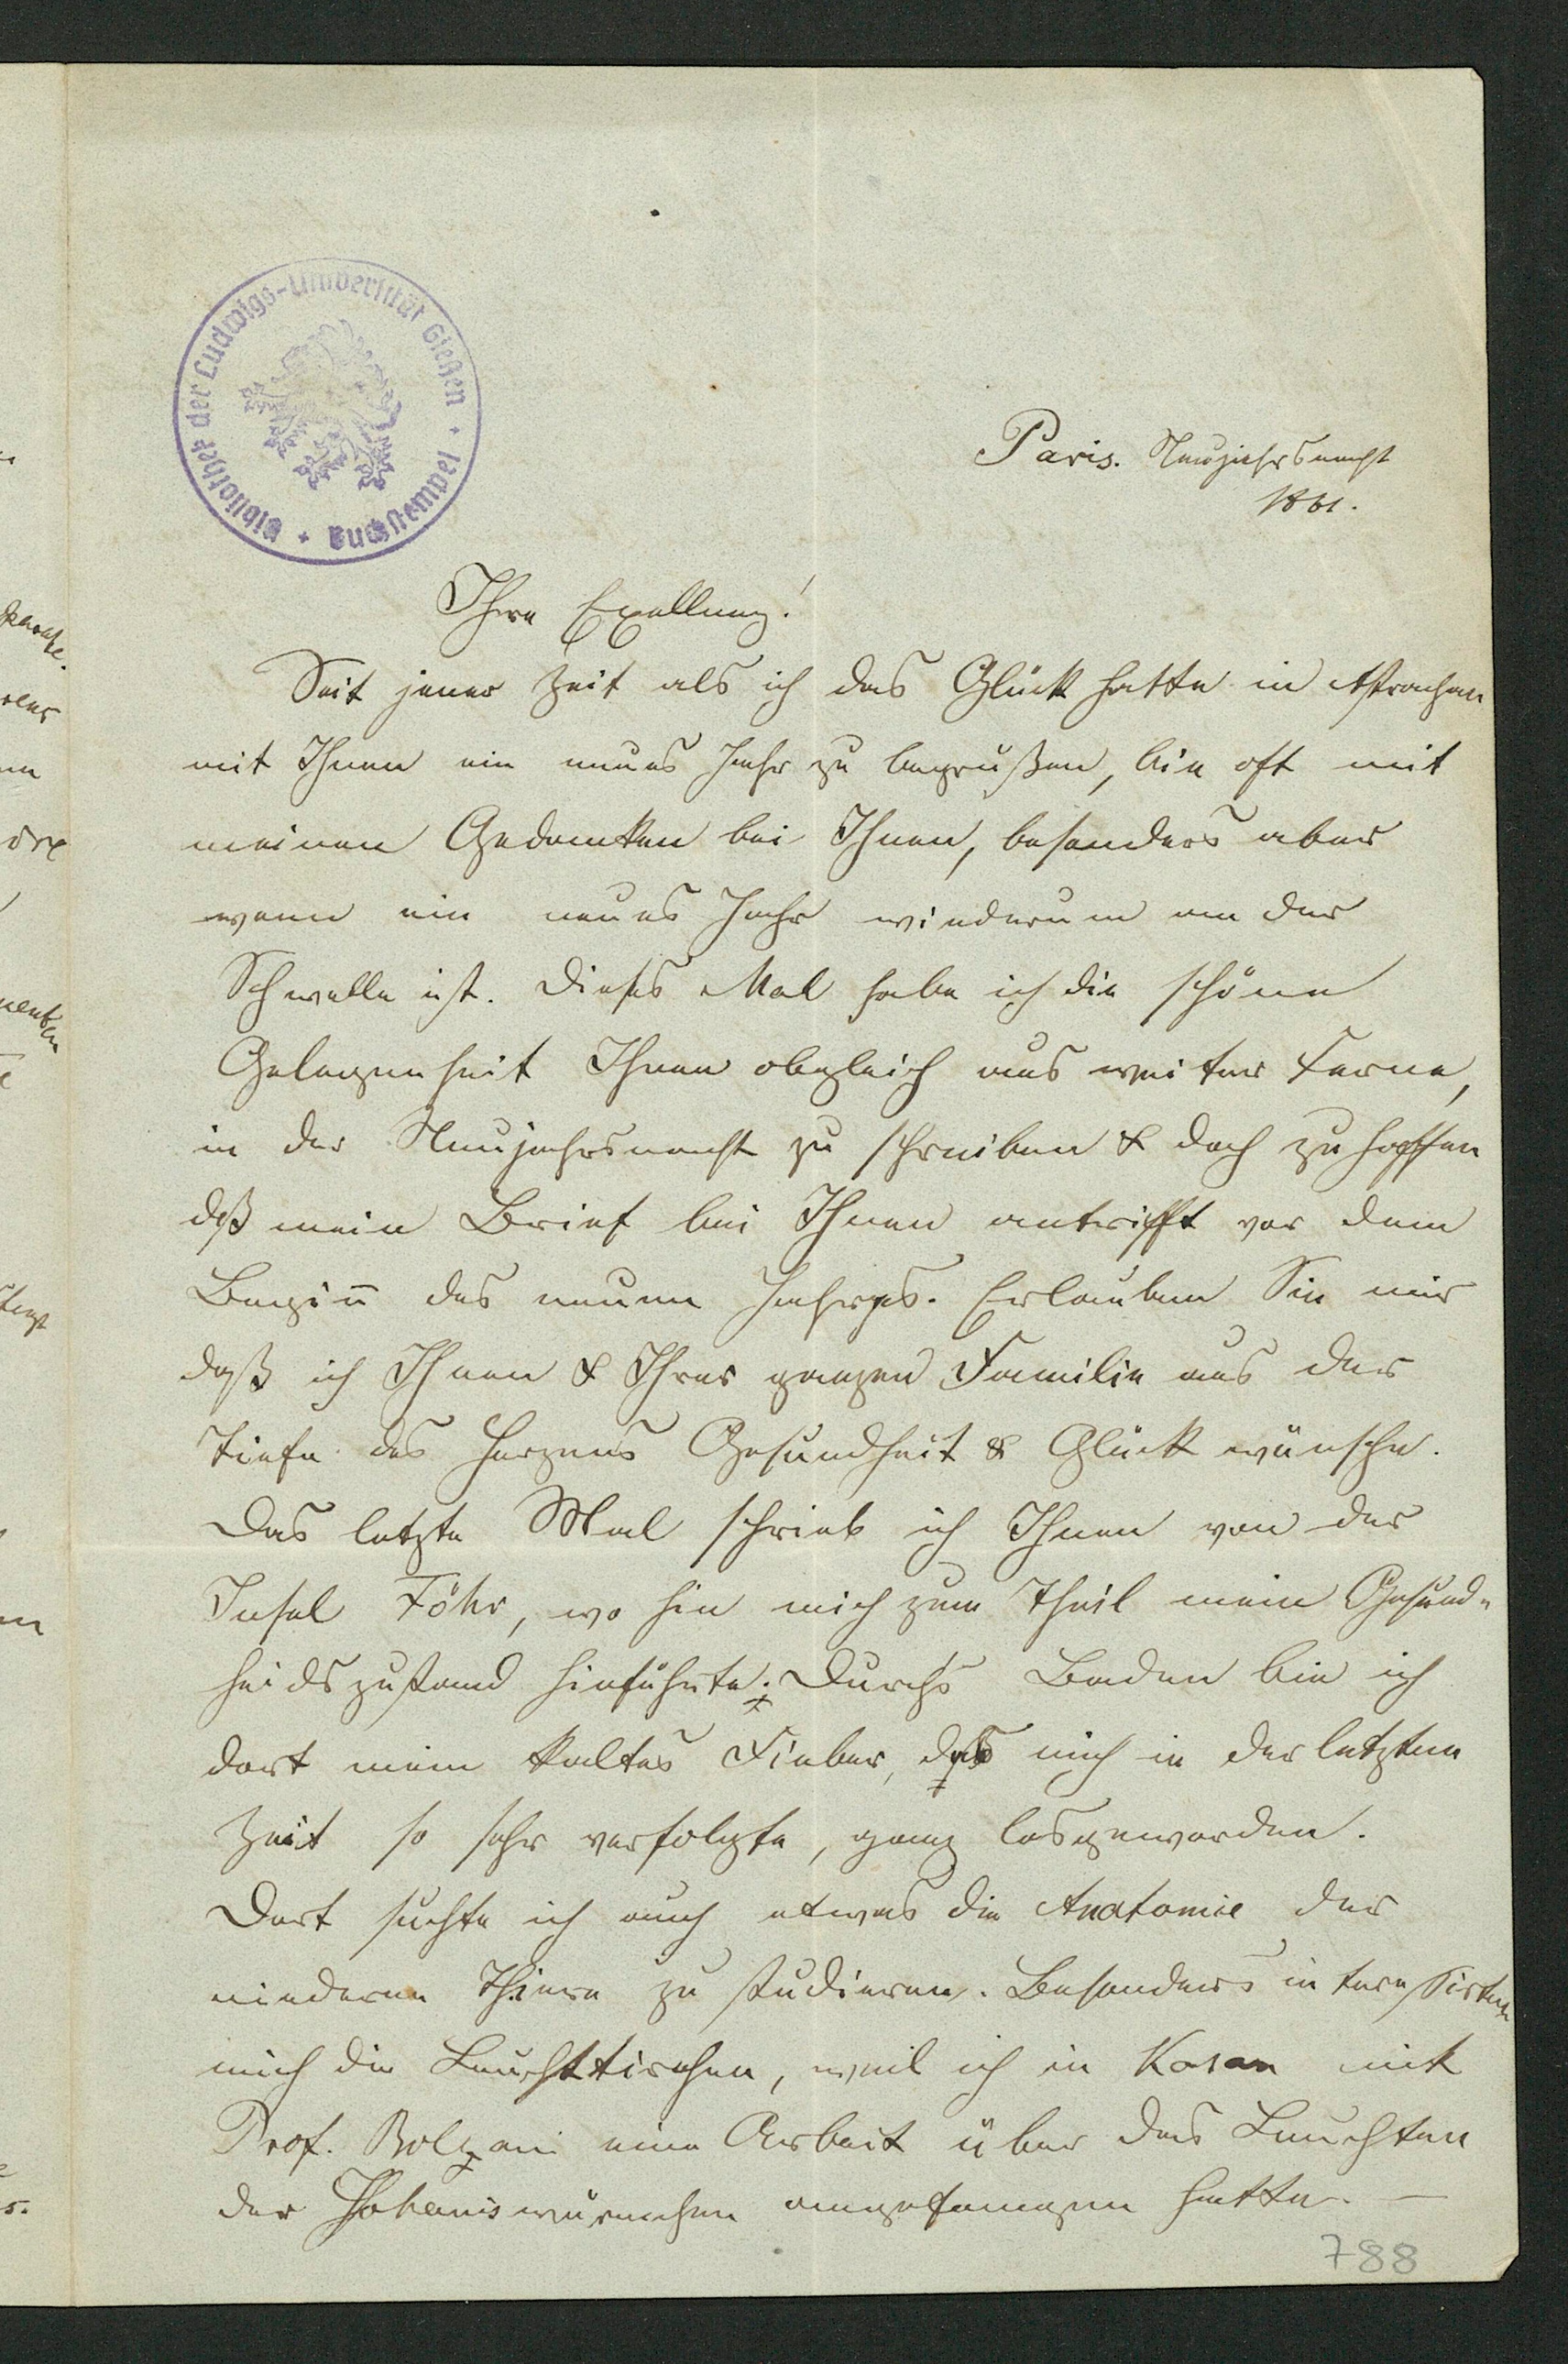 Bibliothek der Ludwigs-Universität Gießen · Buchstempel
Paris. Neujahrsnacht
1861.
Ihre Exellenz!
Seit jener Zeit als ich das Glück hatte in Astrachan
mit Ihnen ein neues Jahr zu begrüßen, bin oft mit
meinen Gedanken bei Ihnen, besonders aber
wenn ein neues Jahr wiederum an der
Schwelle ist. Dieses Mal habe ich die schöne
Gelegenheit Ihnen obgleich aus weiter Ferne,
in der Neujahrsnacht zu schreiben & doch zu hoffen
daß mein Brief bei Ihnen antrifft vor dem
Begin̄ des neuen Jahres. Erlauben Sie mir
daß ich Ihnen & Ihrer ganzen Familie aus der
Tiefe des Herzens Gesundheit & Glück wünsche.
Das letzte Mal schrieb ich Ihnen von der
Insel Föhr, wo hin mich zum Theil mein Gesund-
heidszustand hinführte. Durchs Baden bin ich
dort mein kaltes Fieber, das mich in der letzten
Zeit so sehr verfolgte, ganz losgeworden.
Dort suchte ich auch etwas die Anatomie der
niederen Thiere zu studieren. Besonders interessirten
mich die Leuchttirchen, weil ich in Kasan mit
Prof. Bolzani eine Arbeit über das Leuchten
der Johaniswürmchen angefangen hatte. —
788